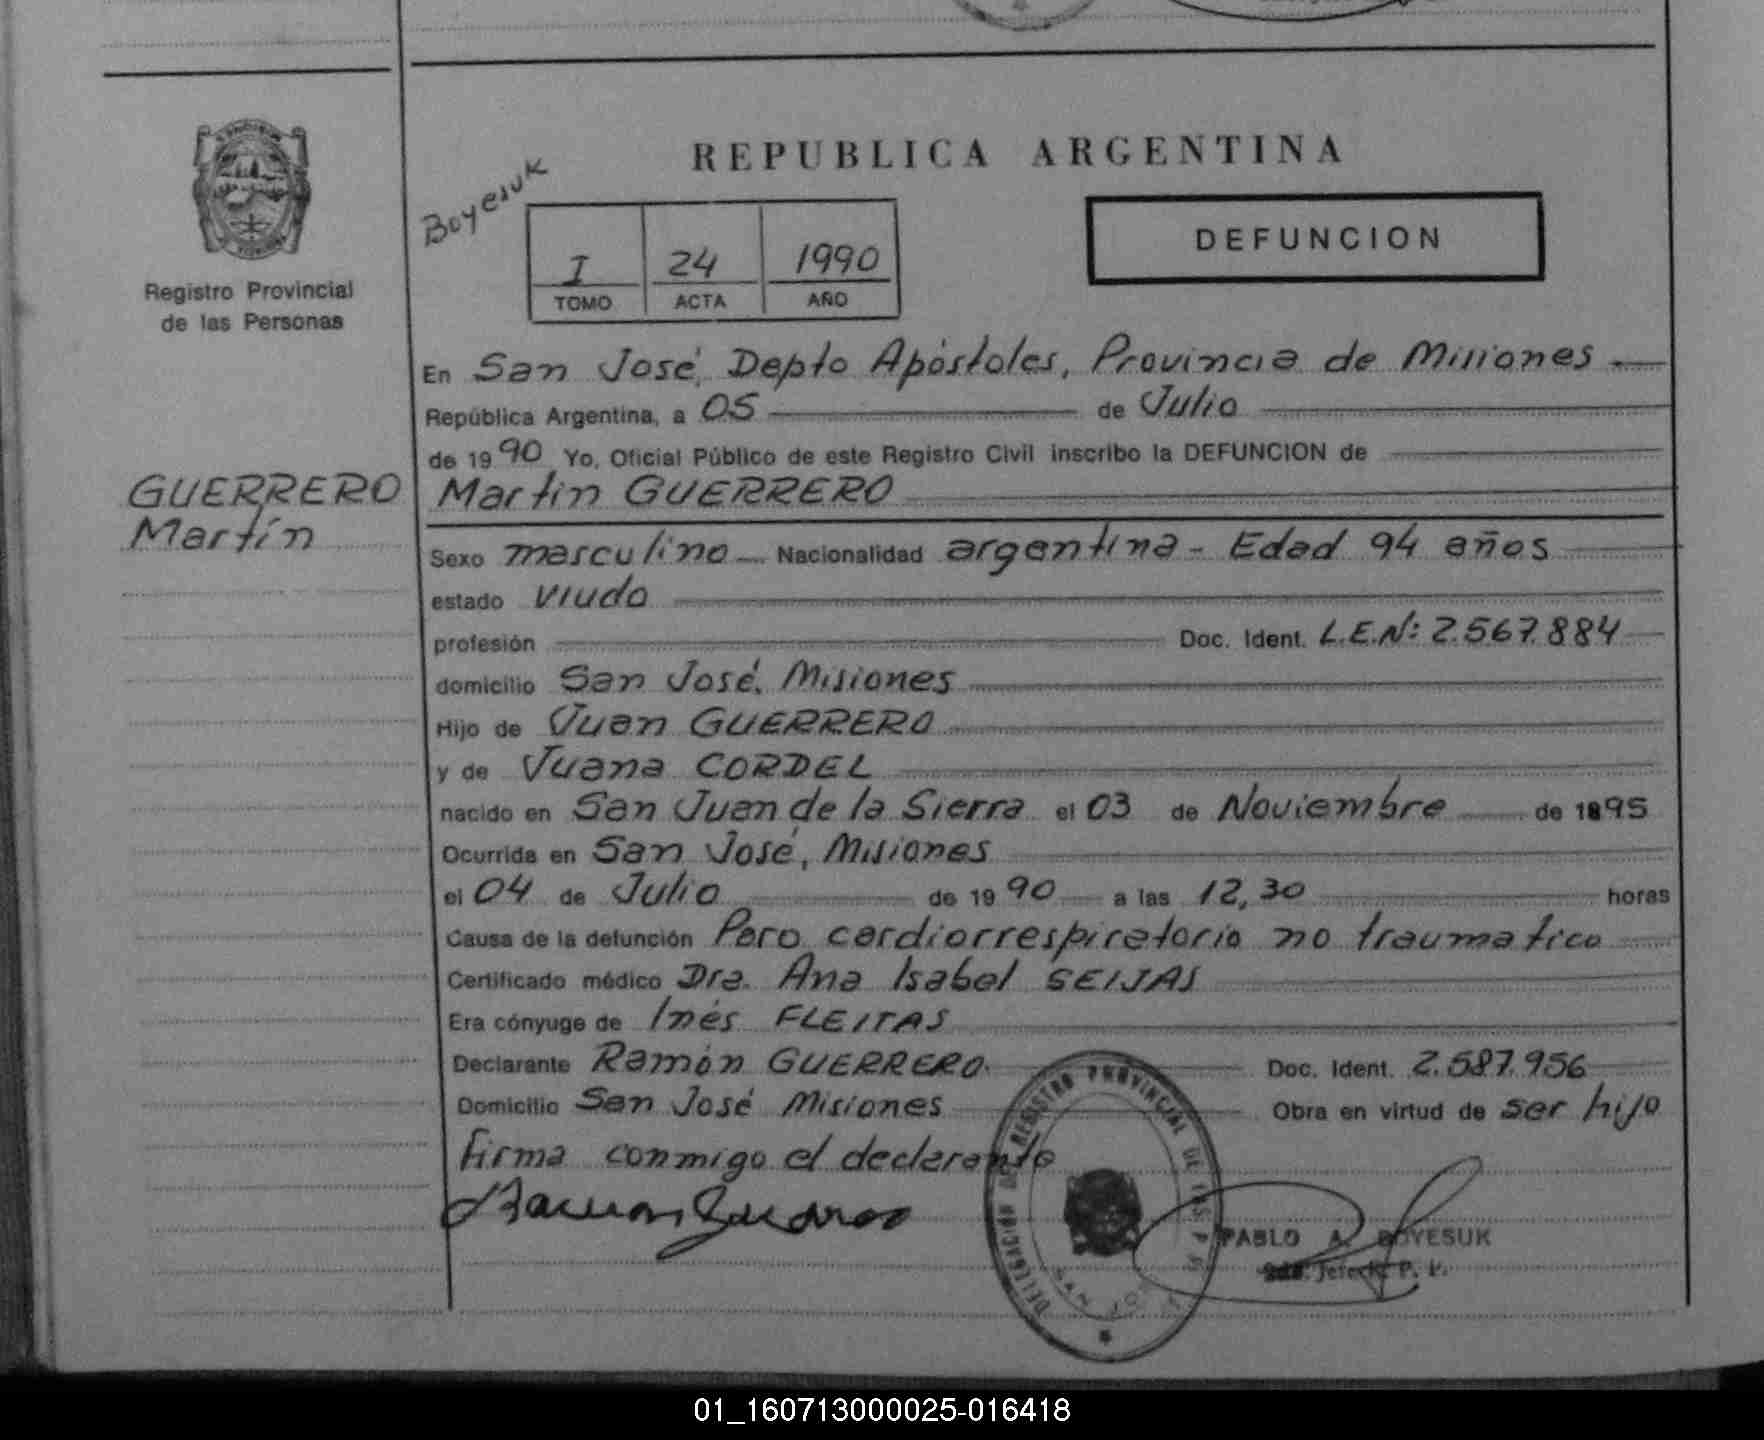 REPUBLICA ARGENTINA
Boyesuk
I 24 1990
TOMO ACTA AÑO
DEFUNCION
Registro Provincial
de las Personas
GUERRERO
Martín
En San José, Depto Apóstoles, Provincia de Misiones
República Argentina, a 05 de Julio
de 1990 Yo, Oficial Público de este Registro Civil inscribo la DEFUNCION de
Martín GUERRERO
Sexo masculino Nacionalidad argentina - Edad 94 años
estado viudo
profesión Doc. Ident. L.E.Nº: 2.567.884
domicilio San José, Misiones
Hijo de Juan GUERRERO
y de Juana CORDEL
nacido en San Juan de la Sierra el 03 de Noviembre de 1895
Ocurrida en San José, Misiones
el 04 de Julio de 1990 a las 12,30 horas
Causa de la defunción Paro cardiorrespiratorio no traumatico
Certificado médico Dra. Ana Isabel SEIJAS
Era cónyuge de Inés FLEITAS
Declarante Ramón GUERRERO Doc. Ident. 2.587.956
Domicilio San José Misiones Obra en virtud de ser hijo
Firma conmigo el declarante
Ramon Guerrero
DELEGACION DEL REGISTRO PROVINCIAL DE LAS P
SAN JO
PABLO A. BOYESUK
Jefe R. P. P.
01_160713000025-016418